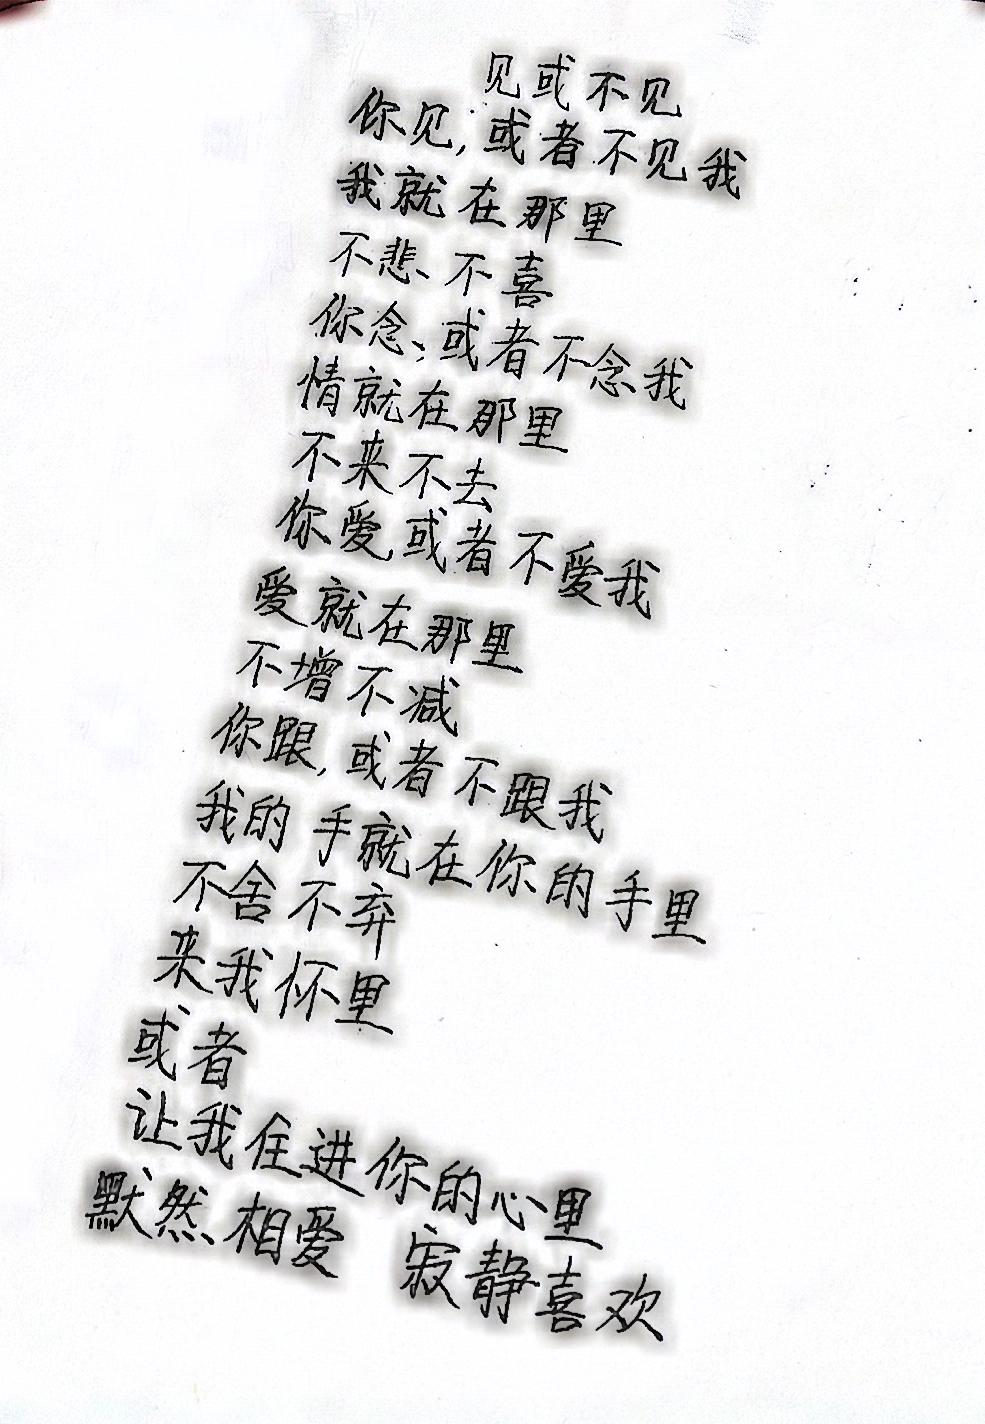 见或不见
你见,或者不见我
我就在那里
不悲、不喜
你念、或者不念我
情就在那里
不来不去
你爱或者不爱我
爱就在那里
不增不减
你跟,或者不跟我
我的手就在你的手里
不舍不弃
来我怀里
或者
让我住进你的心里
默然相爱 寂静喜欢